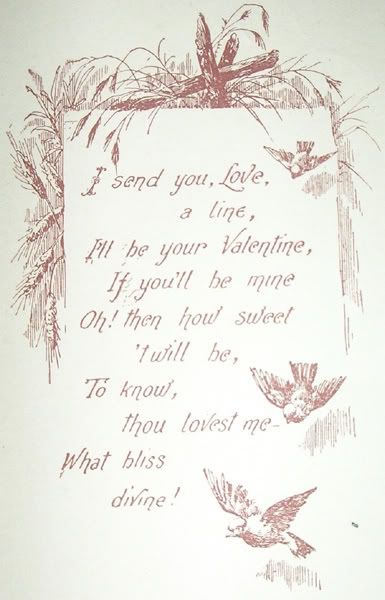 I send you, Love,
a line,
I'll be your Valentine,
If you'll be mine
Oh! then how sweet
't will be,
To know,
thou lovest me-
What bliss
divine!